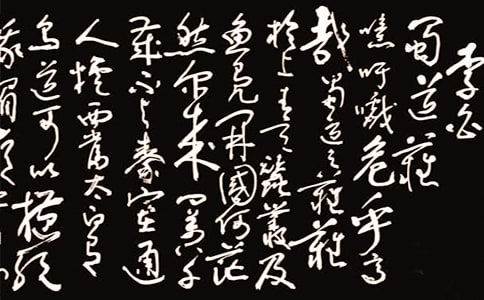 李白
蜀道難
噫吁嚱危乎高
哉蜀道之難難
於上青天蠶叢及
魚鳧開國何茫
然尔来四萬八千
歲不与秦塞通
人煙西當太白有
鳥道可以橫絕
峨眉